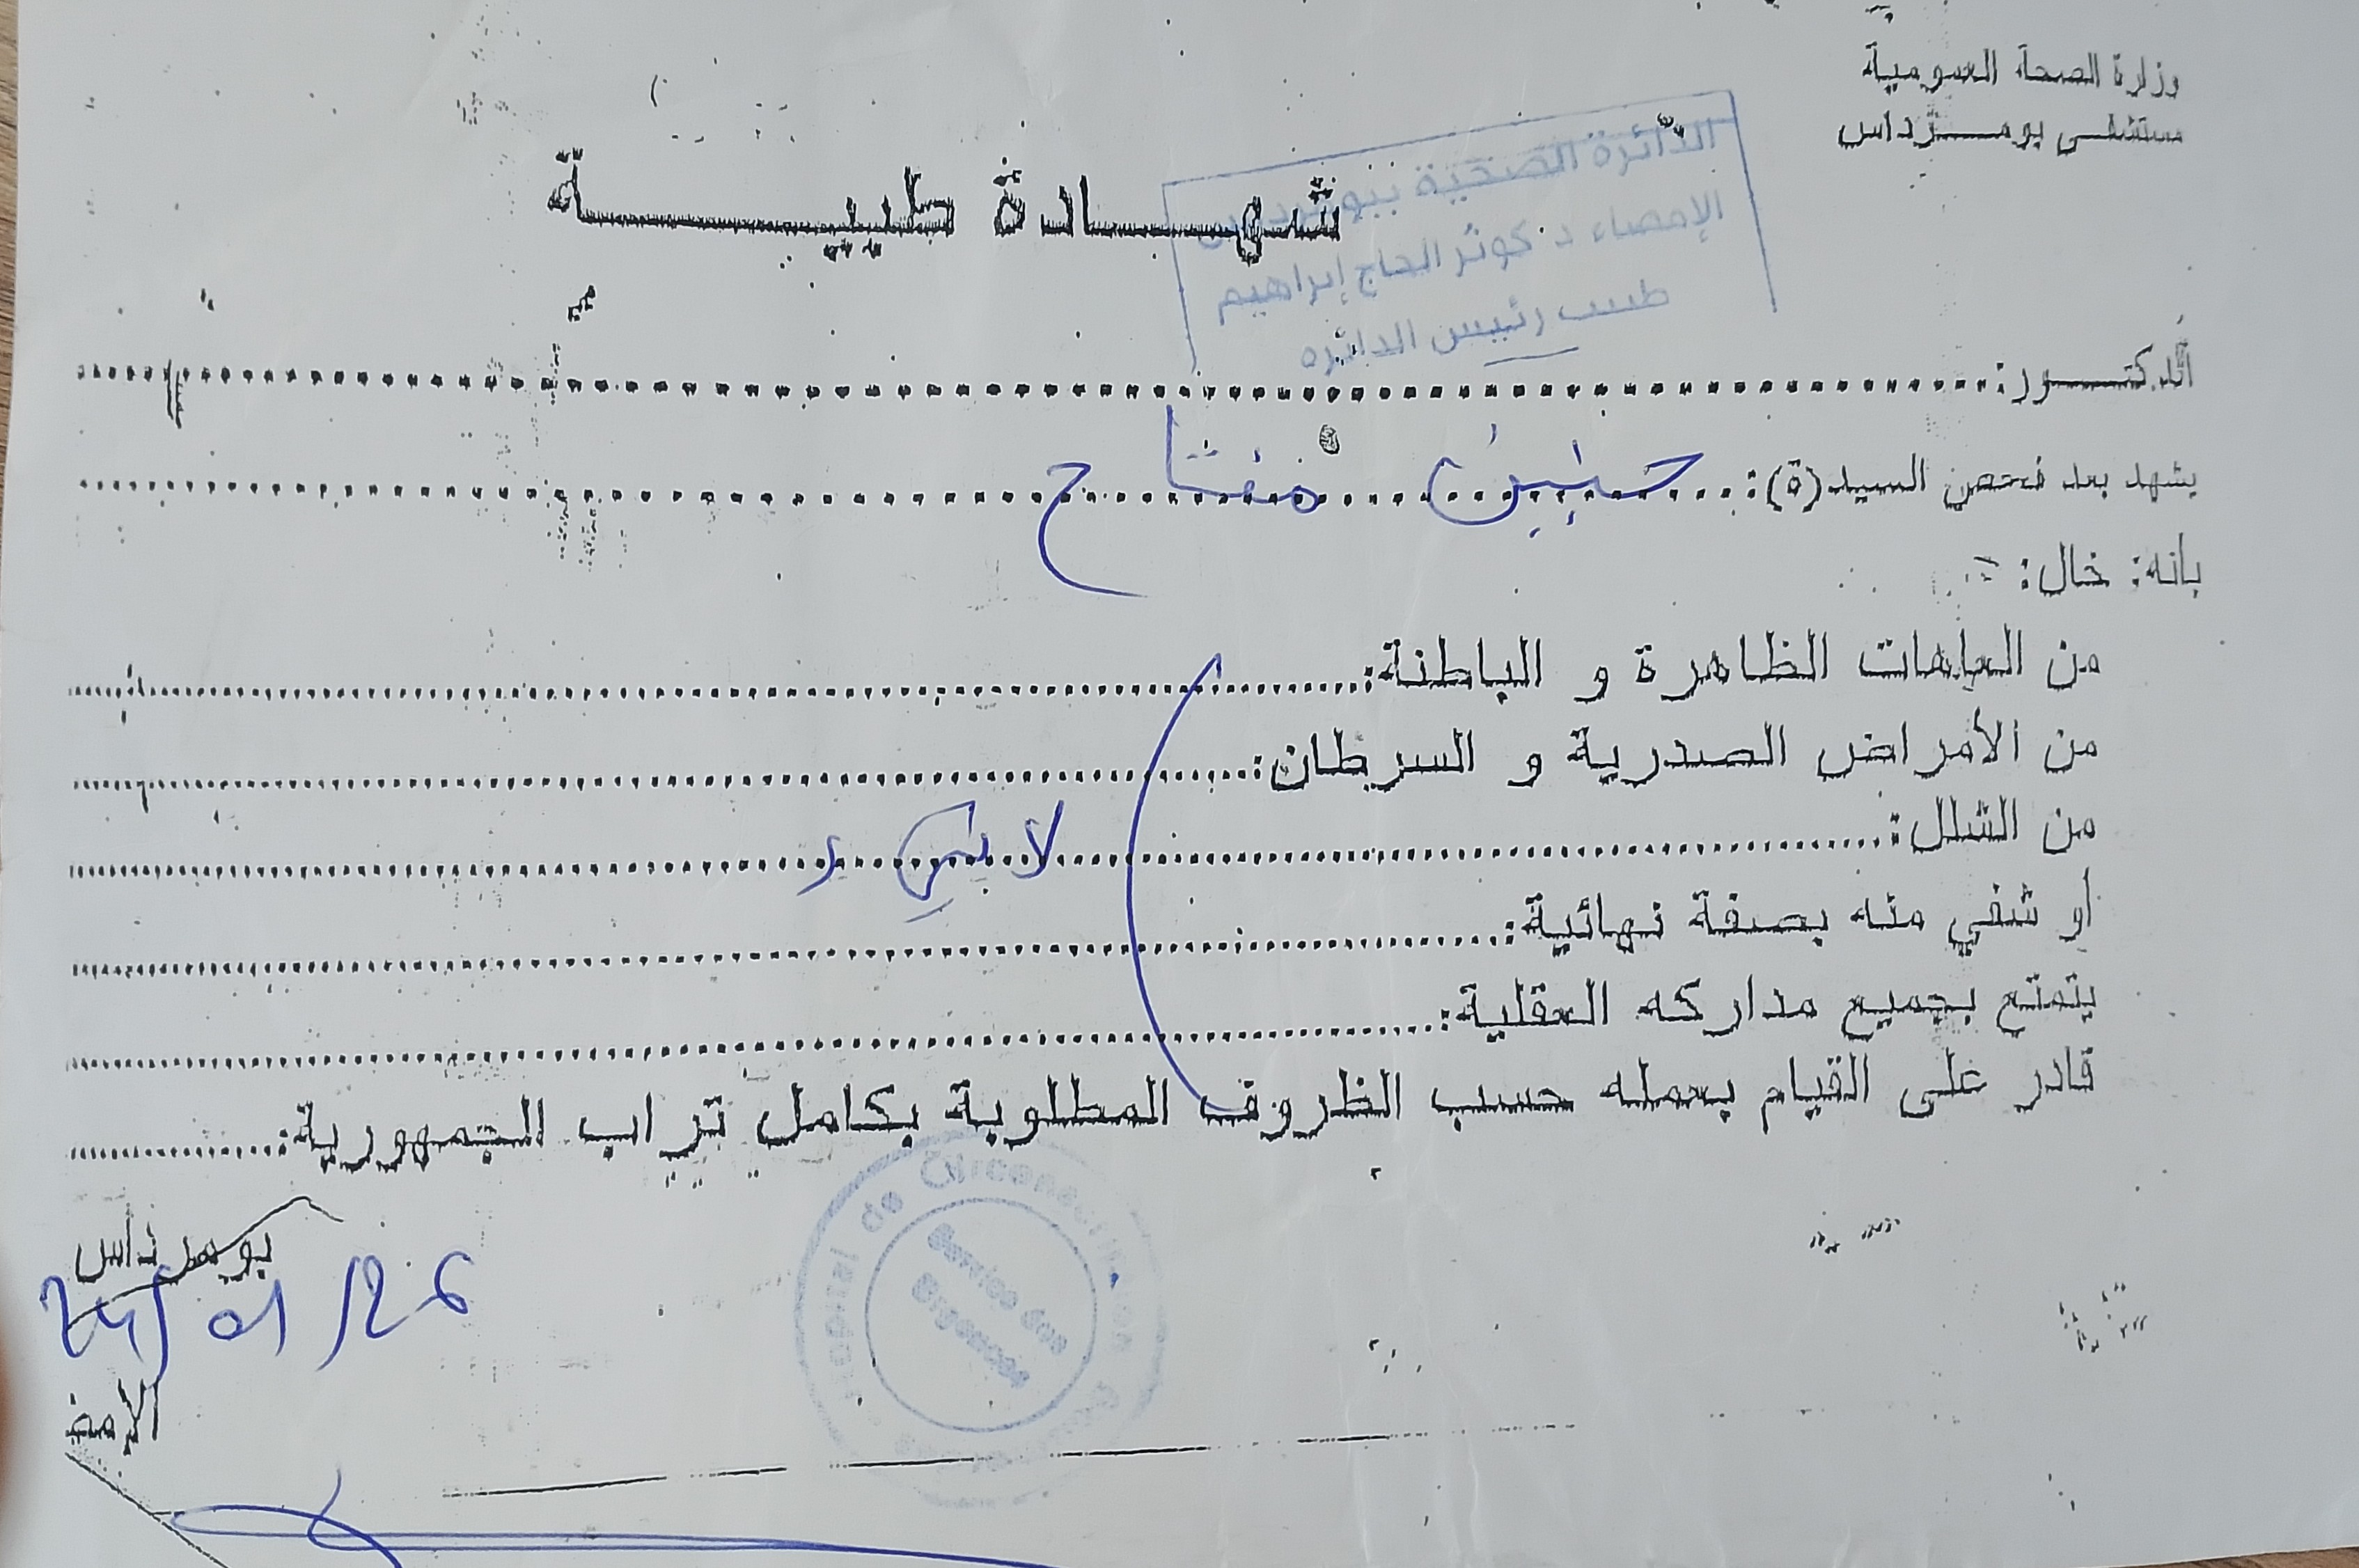 وزارة الصحة العمومية
مستشفى بومـــرداس
الدائرة الصحية ببومرداس
الإمضاء د. كوثر الحاج إبراهيم
طبيب رئيس الدائرة
شهـــادة طبيـــة
الدكتــور:
يشهد بعد فحص السيد(ة): حنين مفتاح
بانه: خال:
من العاهات الظاهرة و الباطنة:
من الأمراض الصدرية و السرطان:
من الشلل:
لا
أو شفي منه بصفة نهائية:
يتمتع بجميع مداركه العقلية:
قادر على القيام بعمله حسب الظروف المطلوبة بكامل تراب الجمهورية:
بومرداس
24/01/26
الإمض
Hopital de Circonscription
Service des Urgences